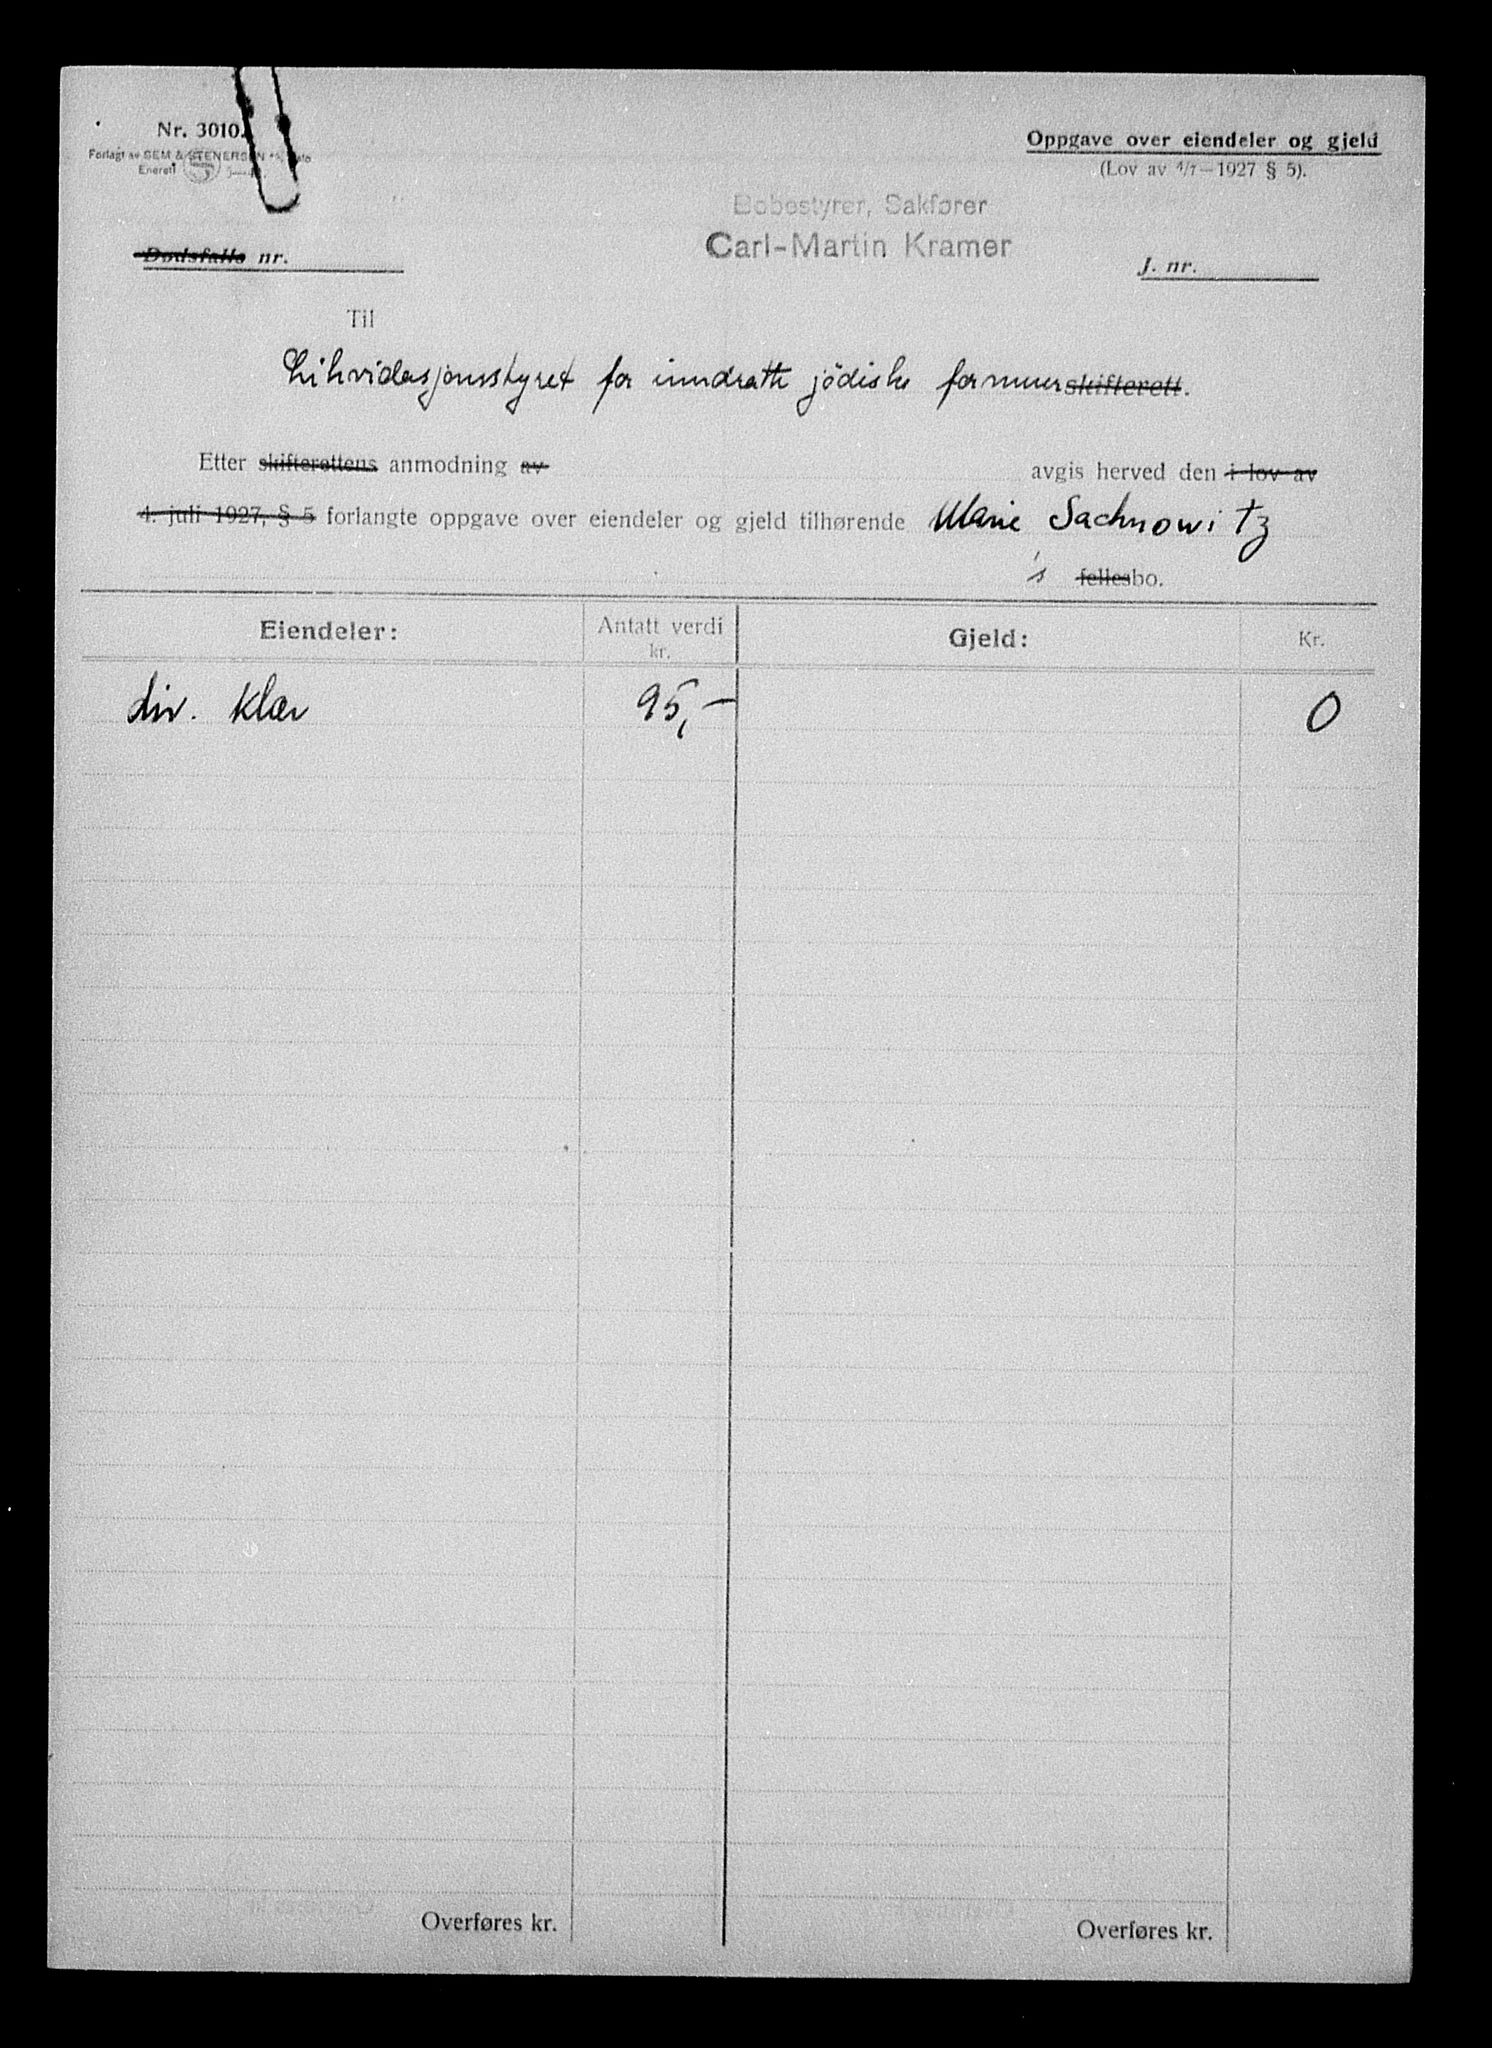 Nr. 3010.
Forlagt av SEM & STENERSEN A/S, Oslo
Enerett
Oppgave over eiendeler og gjeld
(Lov av 4/7—1927 § 5).
Bobestyrer, Sakfører
Carl-Martin Kramer
Dødsfalls nr.
J. nr.
Til
Likvidasjonsstyret for inndratte jödiske formuer skifterett.
Etter skifterettens anmodning av avgis herved den i lov av
4. juli 1927, § 5 forlangte oppgave over eiendeler og gjeld tilhørende Marie Sachnowitz
's fellesbo.
Eiendeler: Antatt verdi kr. Gjeld: Kr.
div. klær 95,- 0
Overføres kr. Overføres kr.